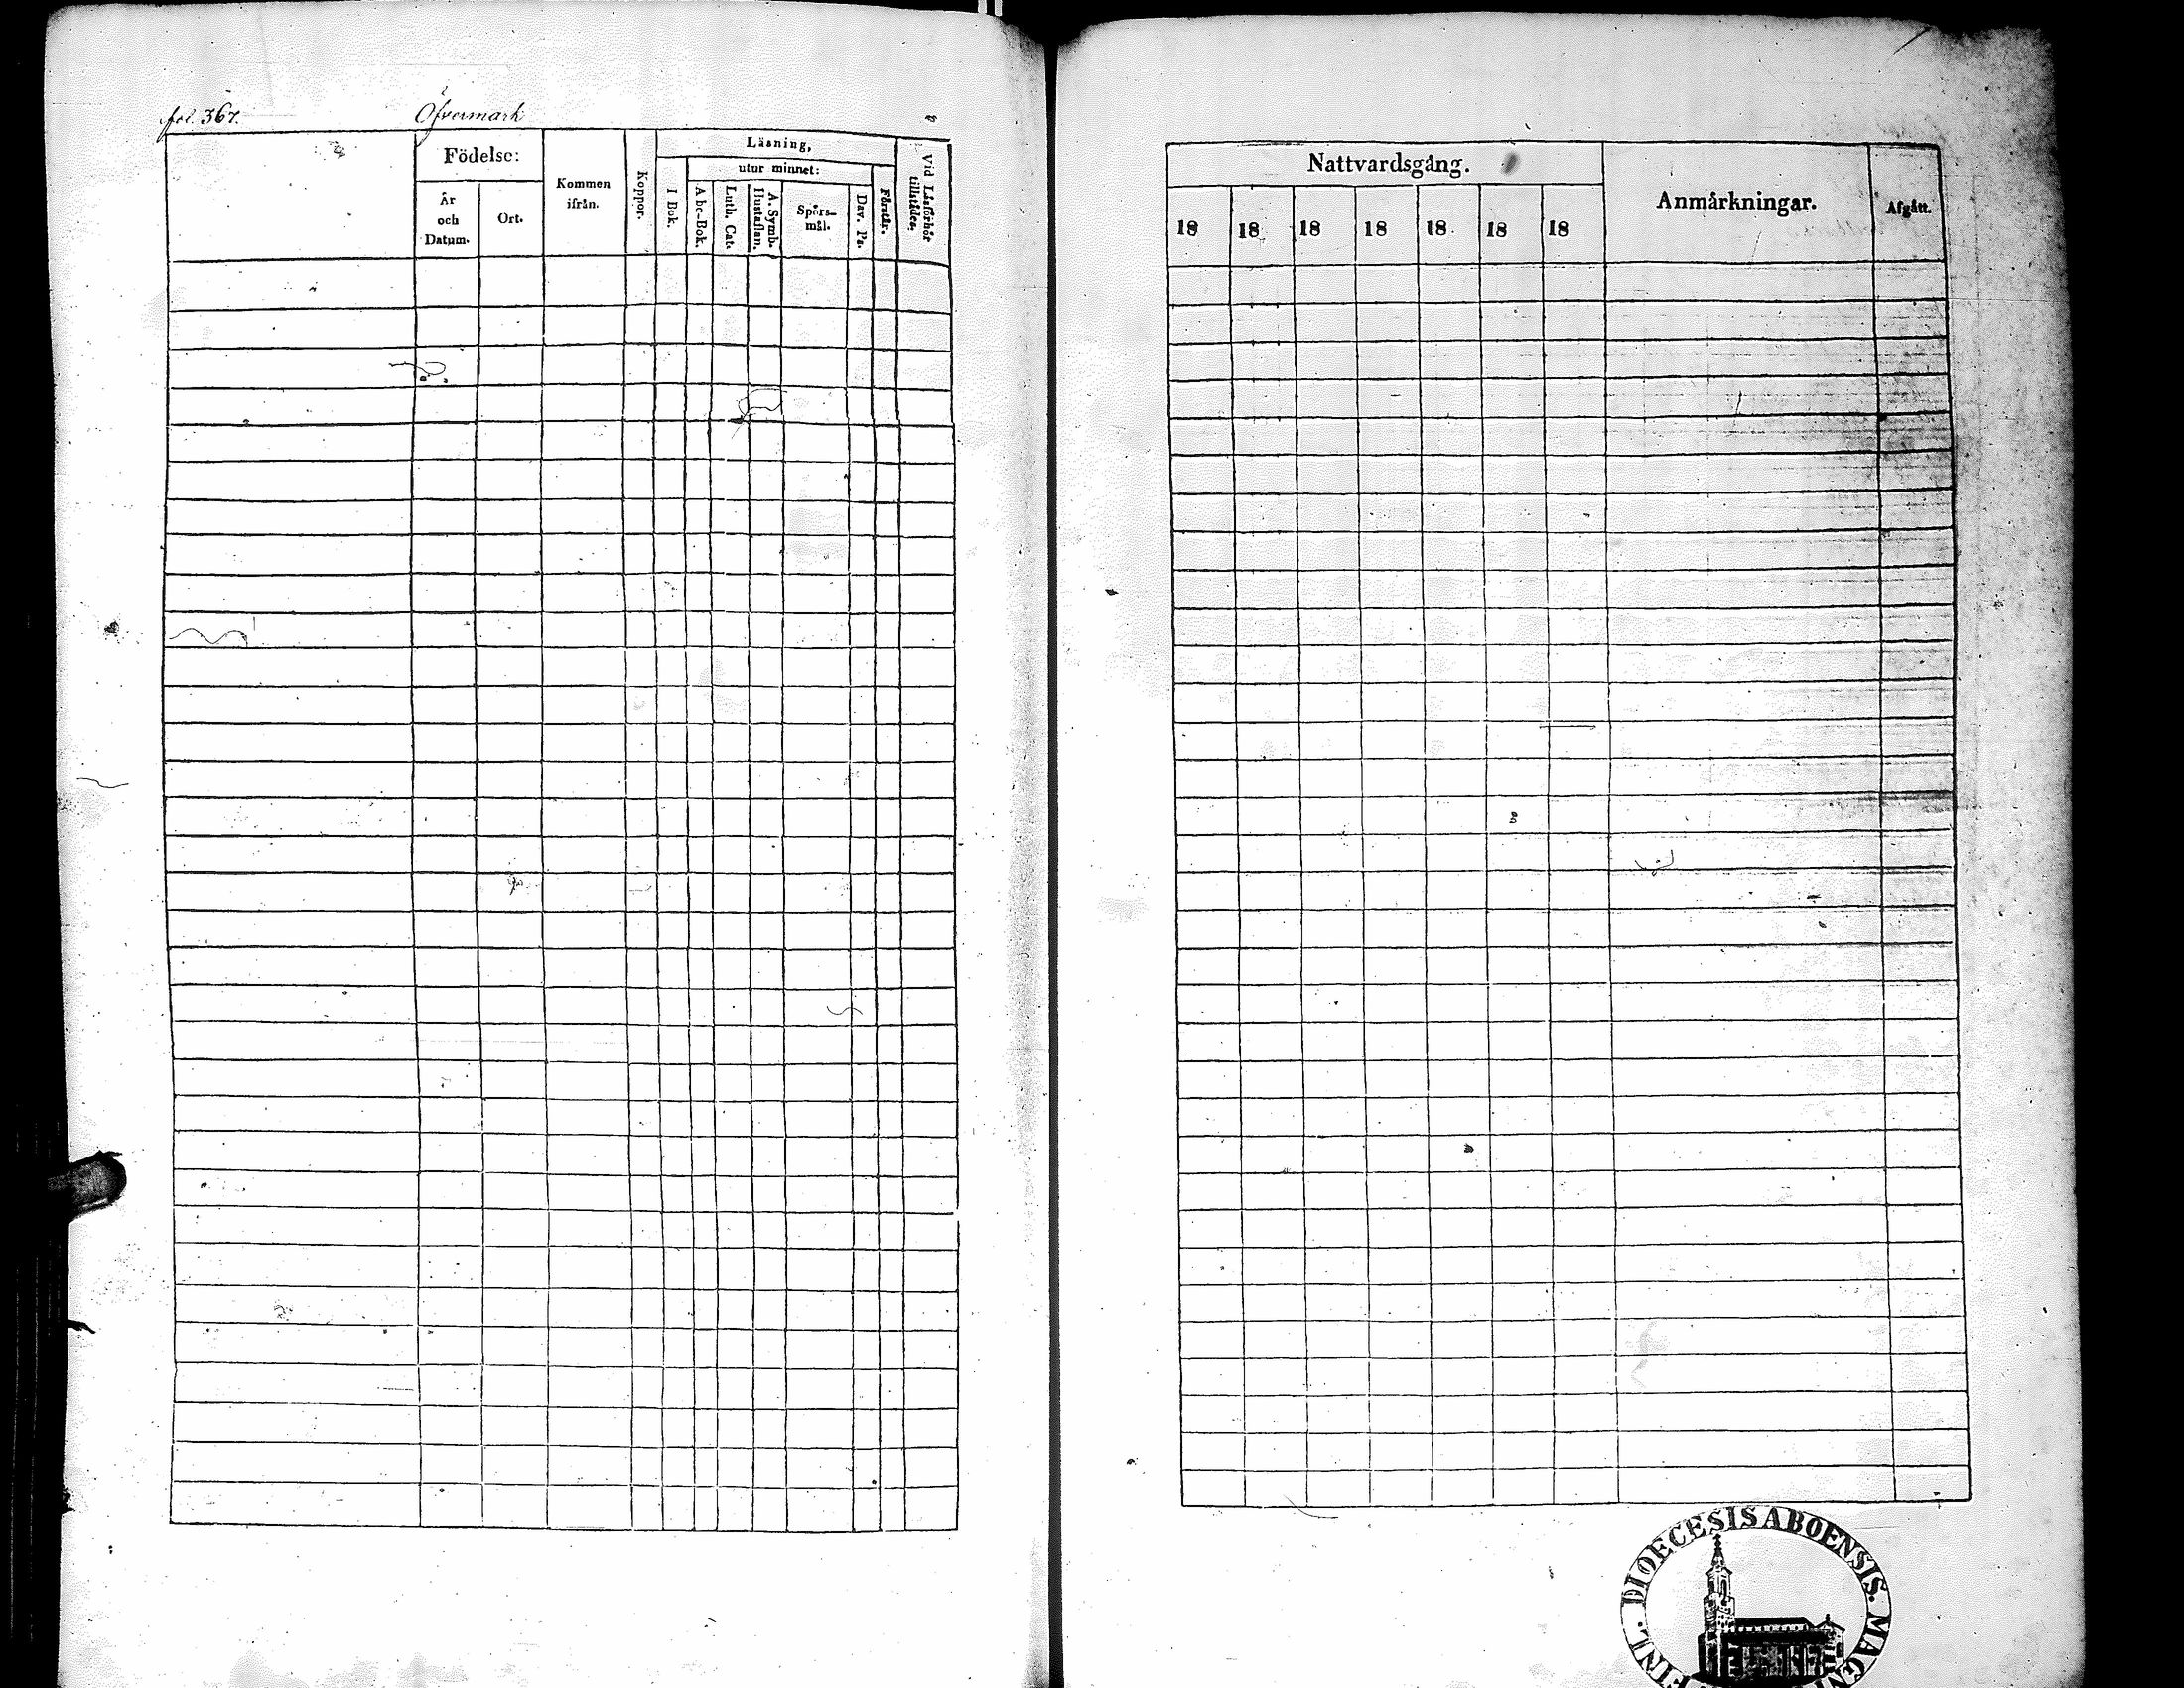 fol. 367. Öfvermark
Födelse:
År
och
Datum.
Ort.
Kommen
ifrån.
Koppor.
Läsning,
utur minnet:
I Bok.
Abc-Bok.
Luth. Cat.
A. Symb.
Hustaflan.
Spörs-
mål.
Dav. Ps.
Förstår.
Vid Läsförhör
tillstädes.
Nattvardsgång.
18 18 18 18 18 18 18
Anmärkningar.
Afgått.
FINL. DIOECESIS ABOENSIS. MAGNI